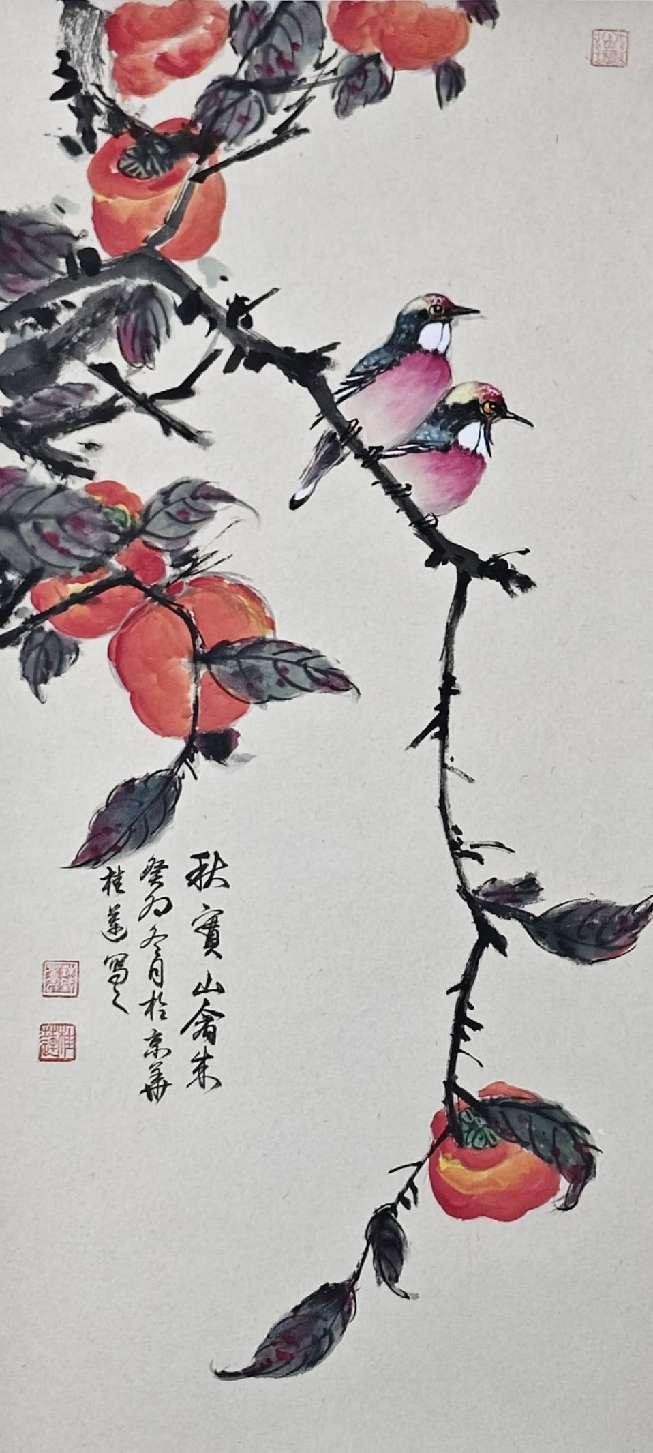 秋實山禽來
癸卯冬月於京華
桂蓮寫之
桂蓮